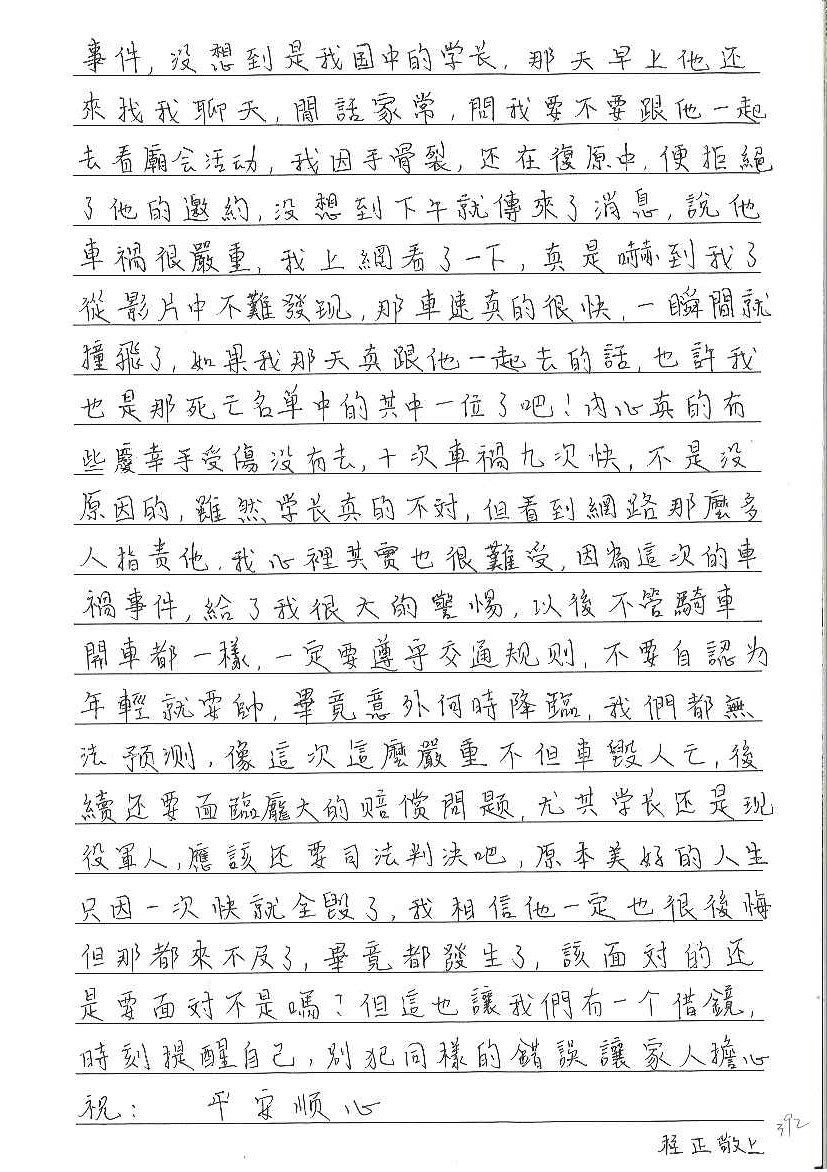 事件，没想到是我国中的学长，那天早上他还
來找我聊天，閒話家常，問我要不要跟他一起
去看廟会活动，我因手骨裂，还在復原中，便拒絕
了他的邀約，没想到下午就傳來了消息，說他
車禍很嚴重，我上網看了一下，真是嚇到我了
從影片中不難發现，那車速真的很快，一瞬間就
撞飛了，如果我那天真跟他一起去的話，也許我
也是那死亡名单中的其中一位了吧！内心真的有
些慶幸手受傷没有去，十次車禍九次快，不是没
原因的，雖然学长真的不对，但看到網路那麼多
人指责他，我心裡其實也很難受，因為這次的車
禍事件，給了我很大的警惕，以後不管騎車
開車都一樣，一定要遵守交通规则，不要自認为
年輕就耍帥，畢竟意外何時降臨，我們都無
法预测，像這次這麼嚴重不但車毀人亡，後
續还要面臨龐大的赔償問题，尤其学长还是现
役軍人，應該还要司法判决吧，原本美好的人生
只因一次快就全毀了，我相信他一定也很後悔
但那都來不及了，畢竟都發生了，該面对的还
是要面对不是嗎？但這也讓我們有一个借鏡，
時刻提醒自己，別犯同樣的錯誤讓家人擔心
祝： 平安顺心
程正敬上
392